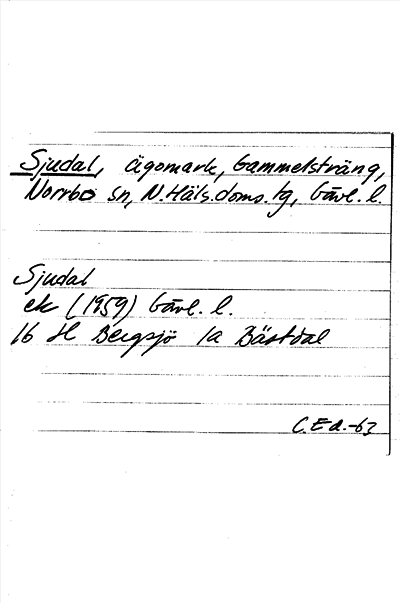 Sjudal, ägomark, Gammelsträng,
Norrbo sn, N.Häls.doms.tg, Gävl.l.
Sjudal
ek (1959) Gävl. l.
16 H Bergsjö 1a Bästdal
C.Ed.-63